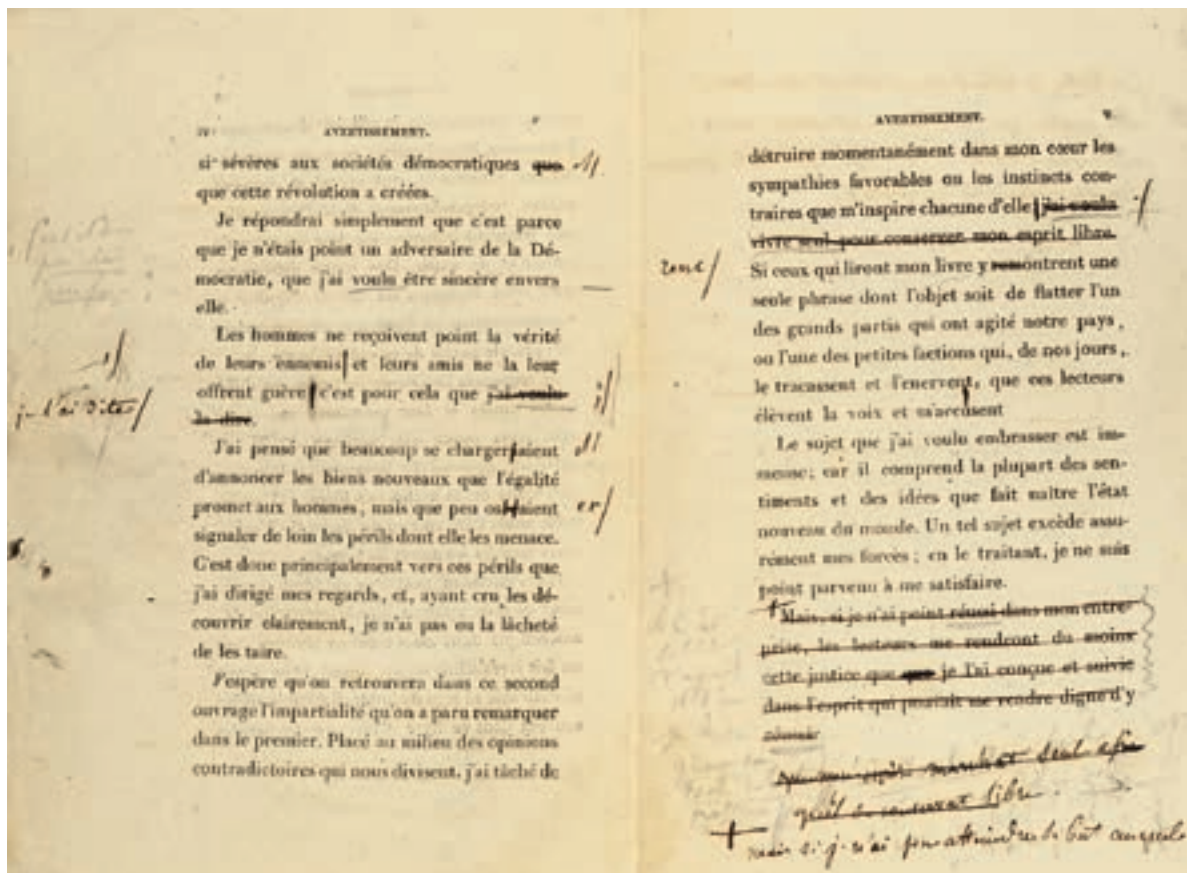 IV AVERTISSEMENT.
si sévères aux sociétés démocratiques que
que cette révolution a créées.
Je répondrai simplement que c'est parce
que je n'étais point un adversaire de la Dé-
mocratie, que j'ai voulu être sincère envers
elle.
Les hommes ne reçoivent point la vérité
de leurs ennemis et leurs amis ne la leur
offrent guère c'est pour cela que j'ai voulu
la dire.
je l'ai dite
J'ai pensé que beaucoup se chargeraient
d'annoncer les biens nouveaux que l'égalité
promet aux hommes, mais que peu osaient
er
signaler de loin les périls dont elle les menace.
C'est donc principalement vers ces périls que
j'ai dirigé mes regards, et, ayant cru les dé-
couvrir clairement, je n'ai pas eu la lâcheté
de les taire.
J'espère qu'on retrouvera dans ce second
ouvrage l'impartialité qu'on a paru remarquer
dans le premier. Placé au milieu des opinions
contradictoires qui nous divisent, j'ai tâché de
AVERTISSEMENT. V
détruire momentanément dans mon cœur les
sympathies favorables ou les instincts con-
traires que m'inspire chacune d'elle j'ai voulu
vivre seul pour conserver mon esprit libre.
Si ceux qui liront mon livre y remontrent une
renc
seule phrase dont l'objet soit de flatter l'un
des grands partis qui ont agité notre pays,
ou l'une des petites factions qui, de nos jours,
le tracassent et l'énervent, que ces lecteurs
élèvent la voix et m'accusent
Le sujet que j'ai voulu embrasser est im-
mense; car il comprend la plupart des sen-
timents et des idées que fait naître l'état
nouveau du monde. Un tel sujet excède assu-
rément mes forces; en le traitant, je ne suis
point parvenu à me satisfaire.
Mais, si je n'ai point réussi dans mon entre-
prise, les lecteurs me rendront du moins
cette justice que que je l'ai conçue et suivie
dans l'esprit qui pouvait me rendre digne d'y
réussir
marchat seul afin
qu'il libre.
mais si je n'ai pu atteindre le but auquel